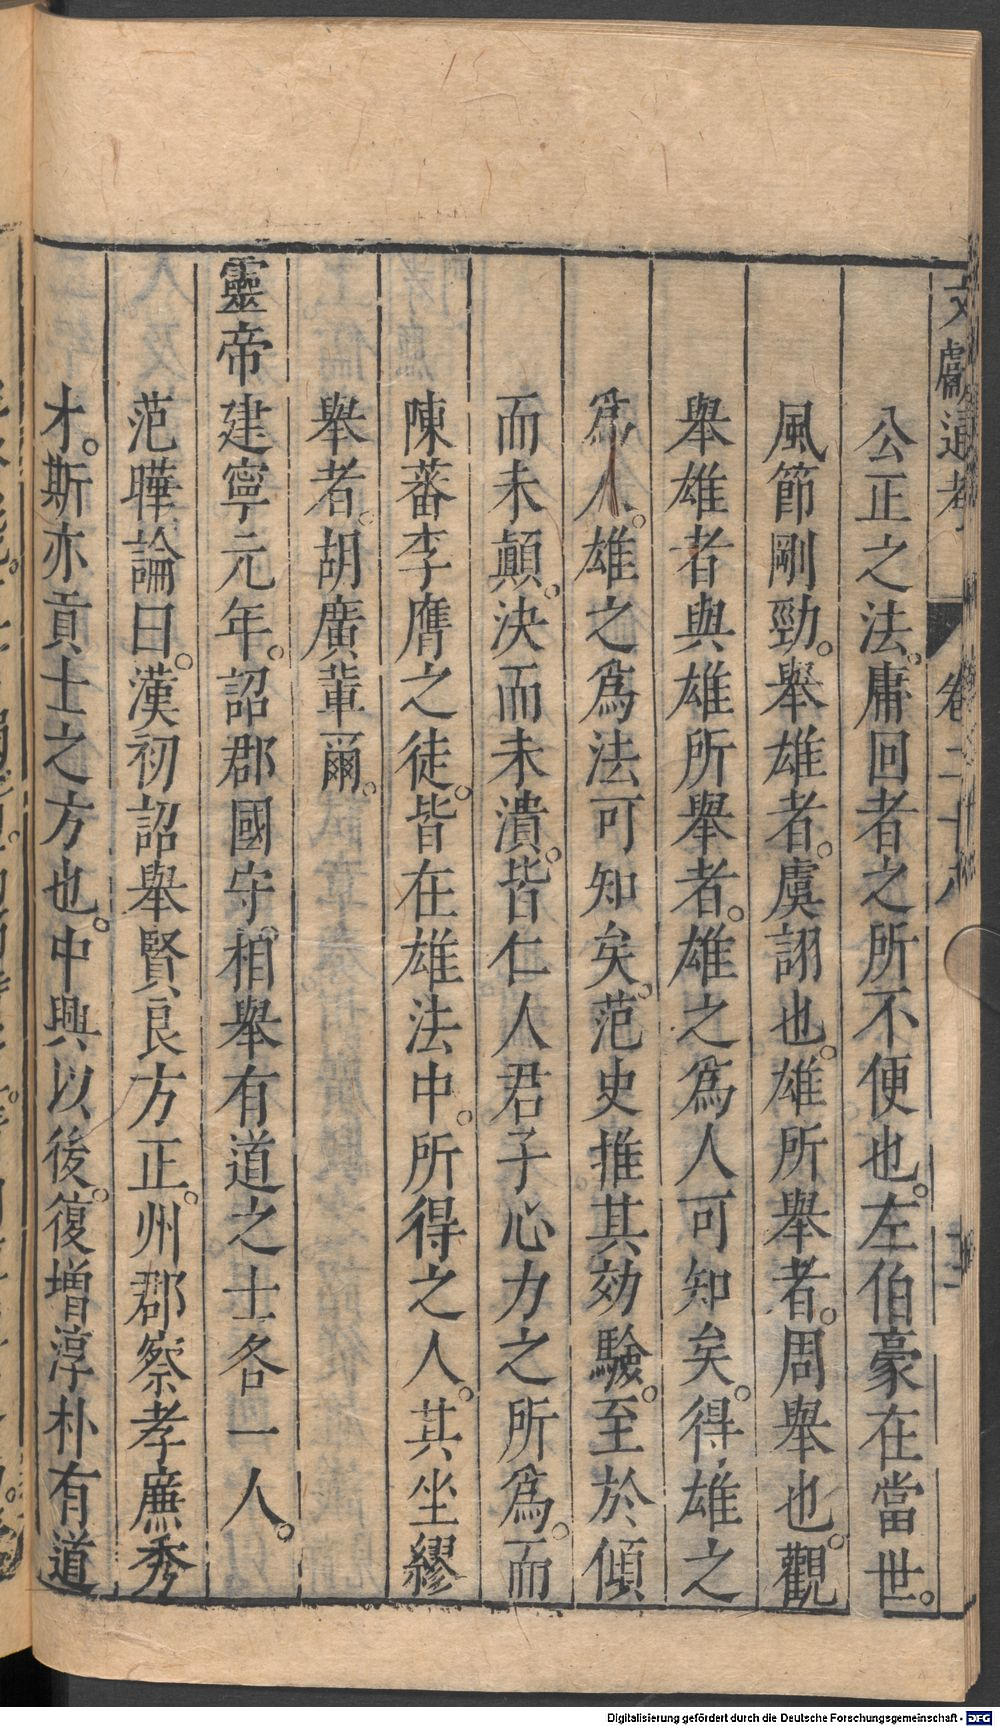 文獻通考 卷二十八 十二
公正之法。庸回者之所不便也。左伯豪在當世。
風節剛勁。舉雄者。虞詡也。雄所舉者。周舉也。觀
舉雄者與雄所舉者。雄之爲人可知矣。得雄之
爲人。雄之爲法可知矣。范史推其効驗。至於傾
而未顛。決而未潰。皆仁人君子心力之所爲。而
陳蕃李膺之徒。皆在雄法中。所得之人。其坐繆
舉者。胡廣輩爾。
靈帝建寧元年。詔郡國守。相舉有道之士各一人。
范曄論曰。漢初詔舉賢良方正。州郡察孝廉秀
才。斯亦貢士之方也。中興以後。復增淳朴有道
Digitalisierung gefördert durch die Deutsche Forschungsgemeinschaft - DFG